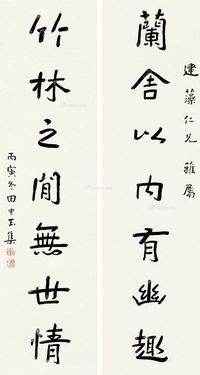 建藻仁兄雅屬
蘭舍以内有幽趣
竹林之間無世情
丙寅冬田中玉集